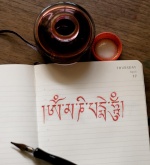 །ཨོཾ་མ་ཎི་པདྨེ་ཧཱུྃ།